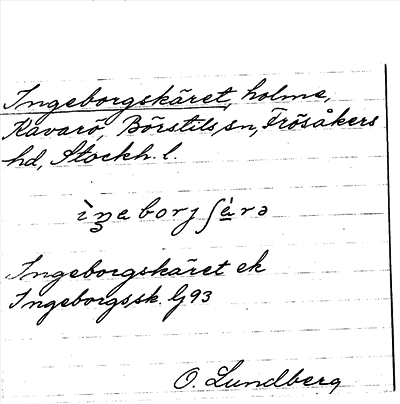 Ingeborgskäret, holme,
Kavarö, Börstils sn, Frösåkers
hd, Stockh. l.
ìŋeborj ʃä̀rə
Ingeborgskäret ek
Ingeborgssk. G 93
O. Lundberg